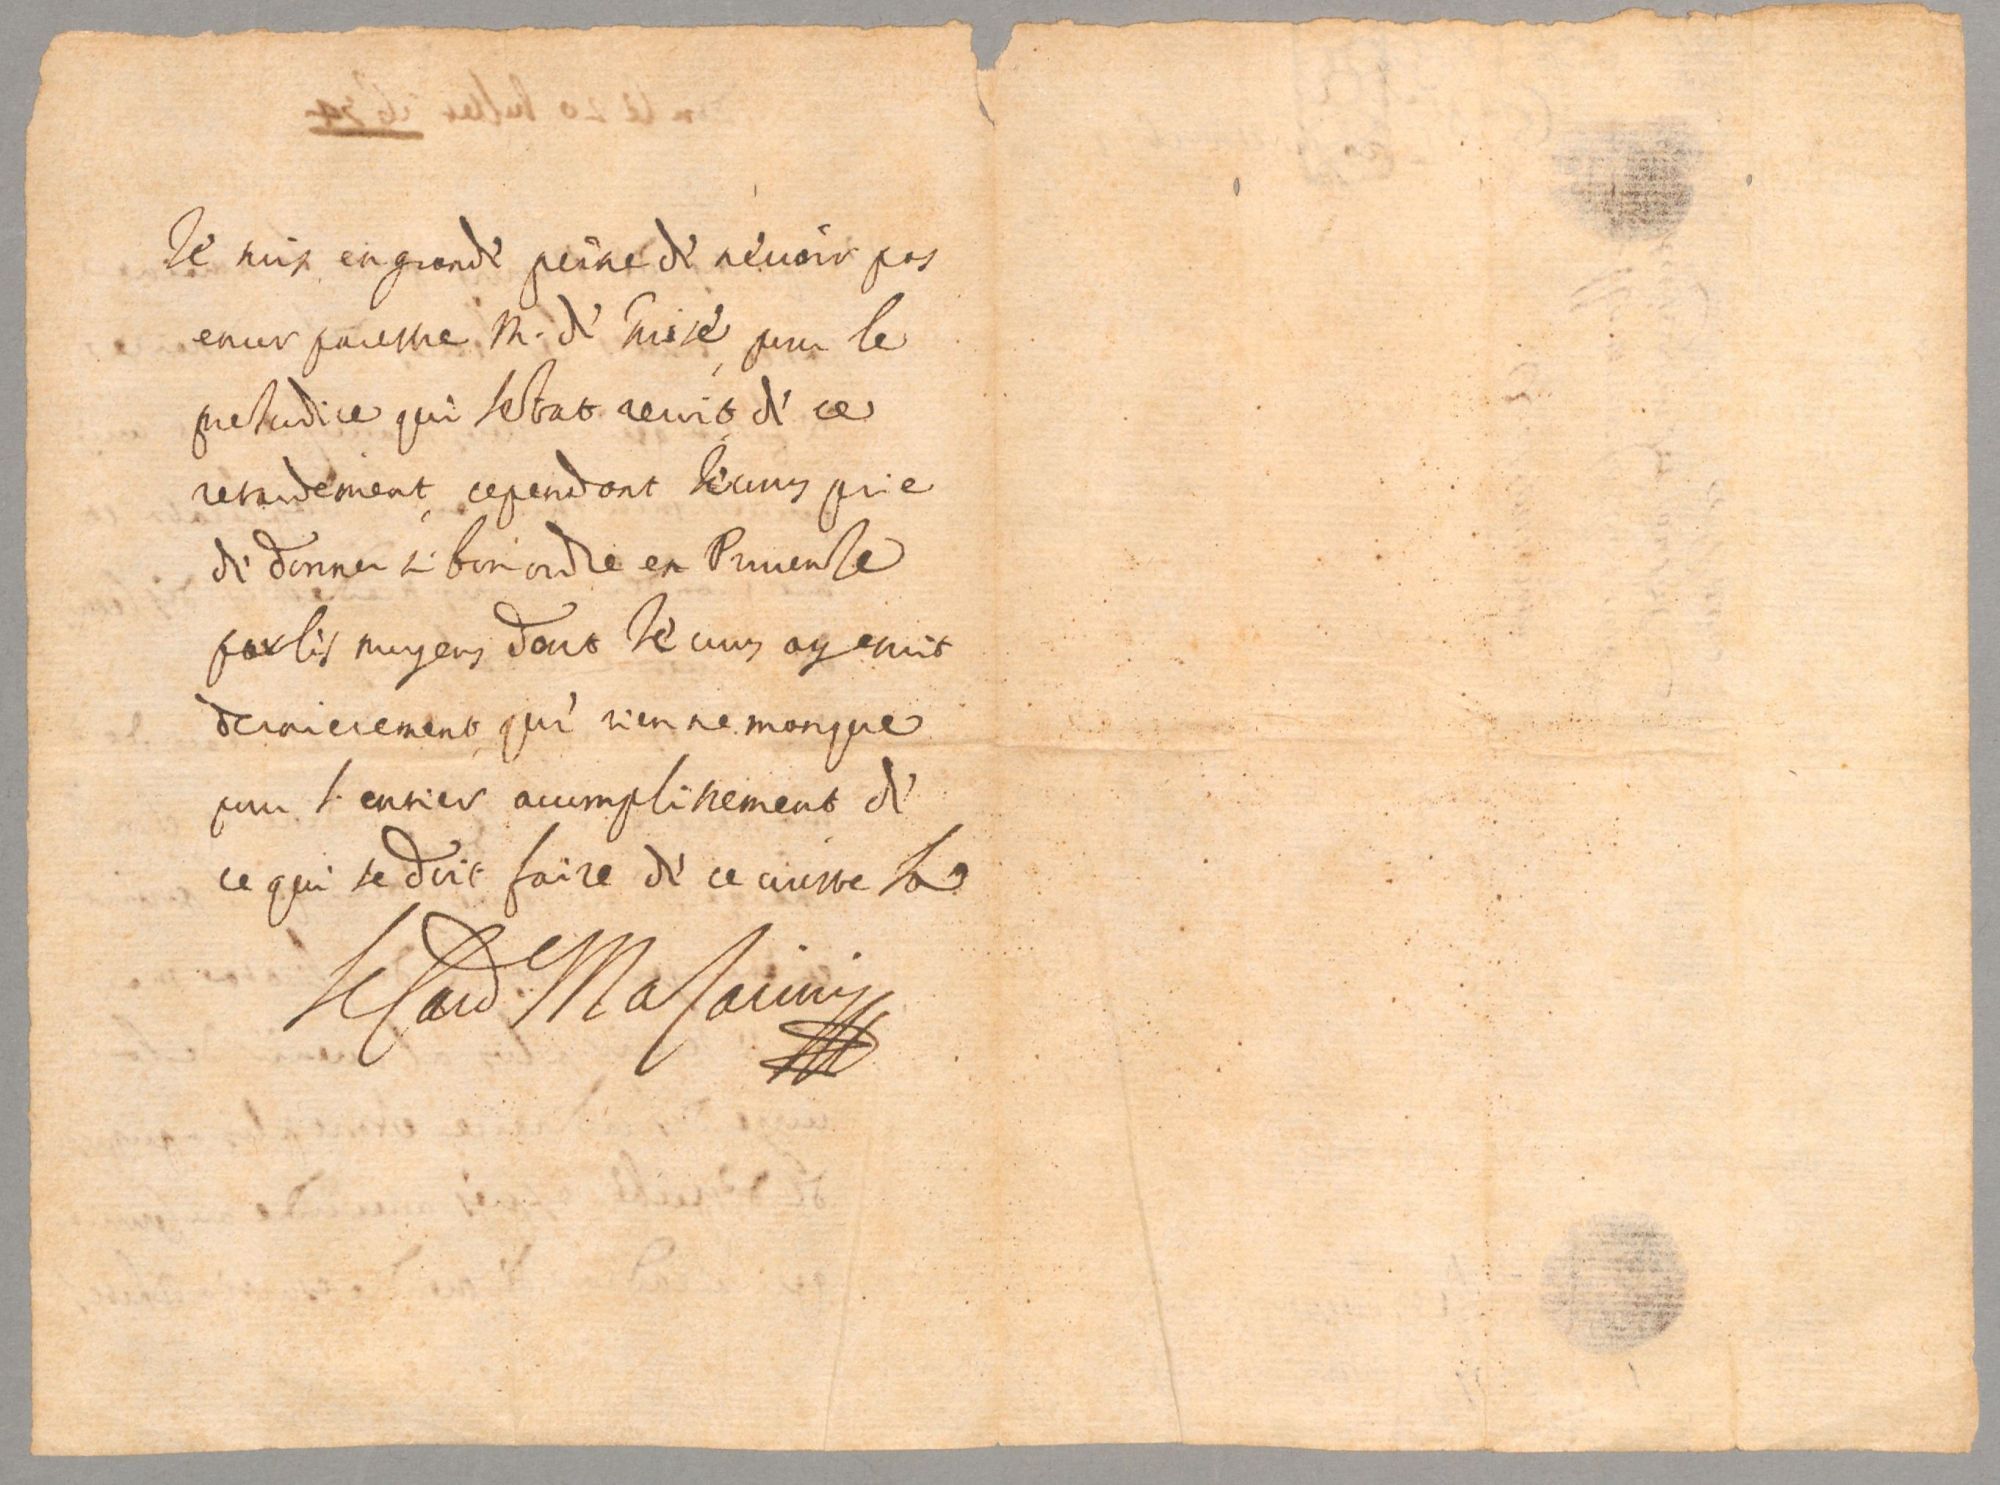 Je suis en grande peine de ne voir pas
encor paretre M. de Guise pour le
prejudice que l'estat recoit de ce
retardement, cependant je vous prie
de donner si bon ordre en Provense
par les moyens dont je vous ay escrit
dernierement, que rien ne manque
pour l'entier acomplissement de
ce qui se doit faire de ce coste la
le Card Mazarini